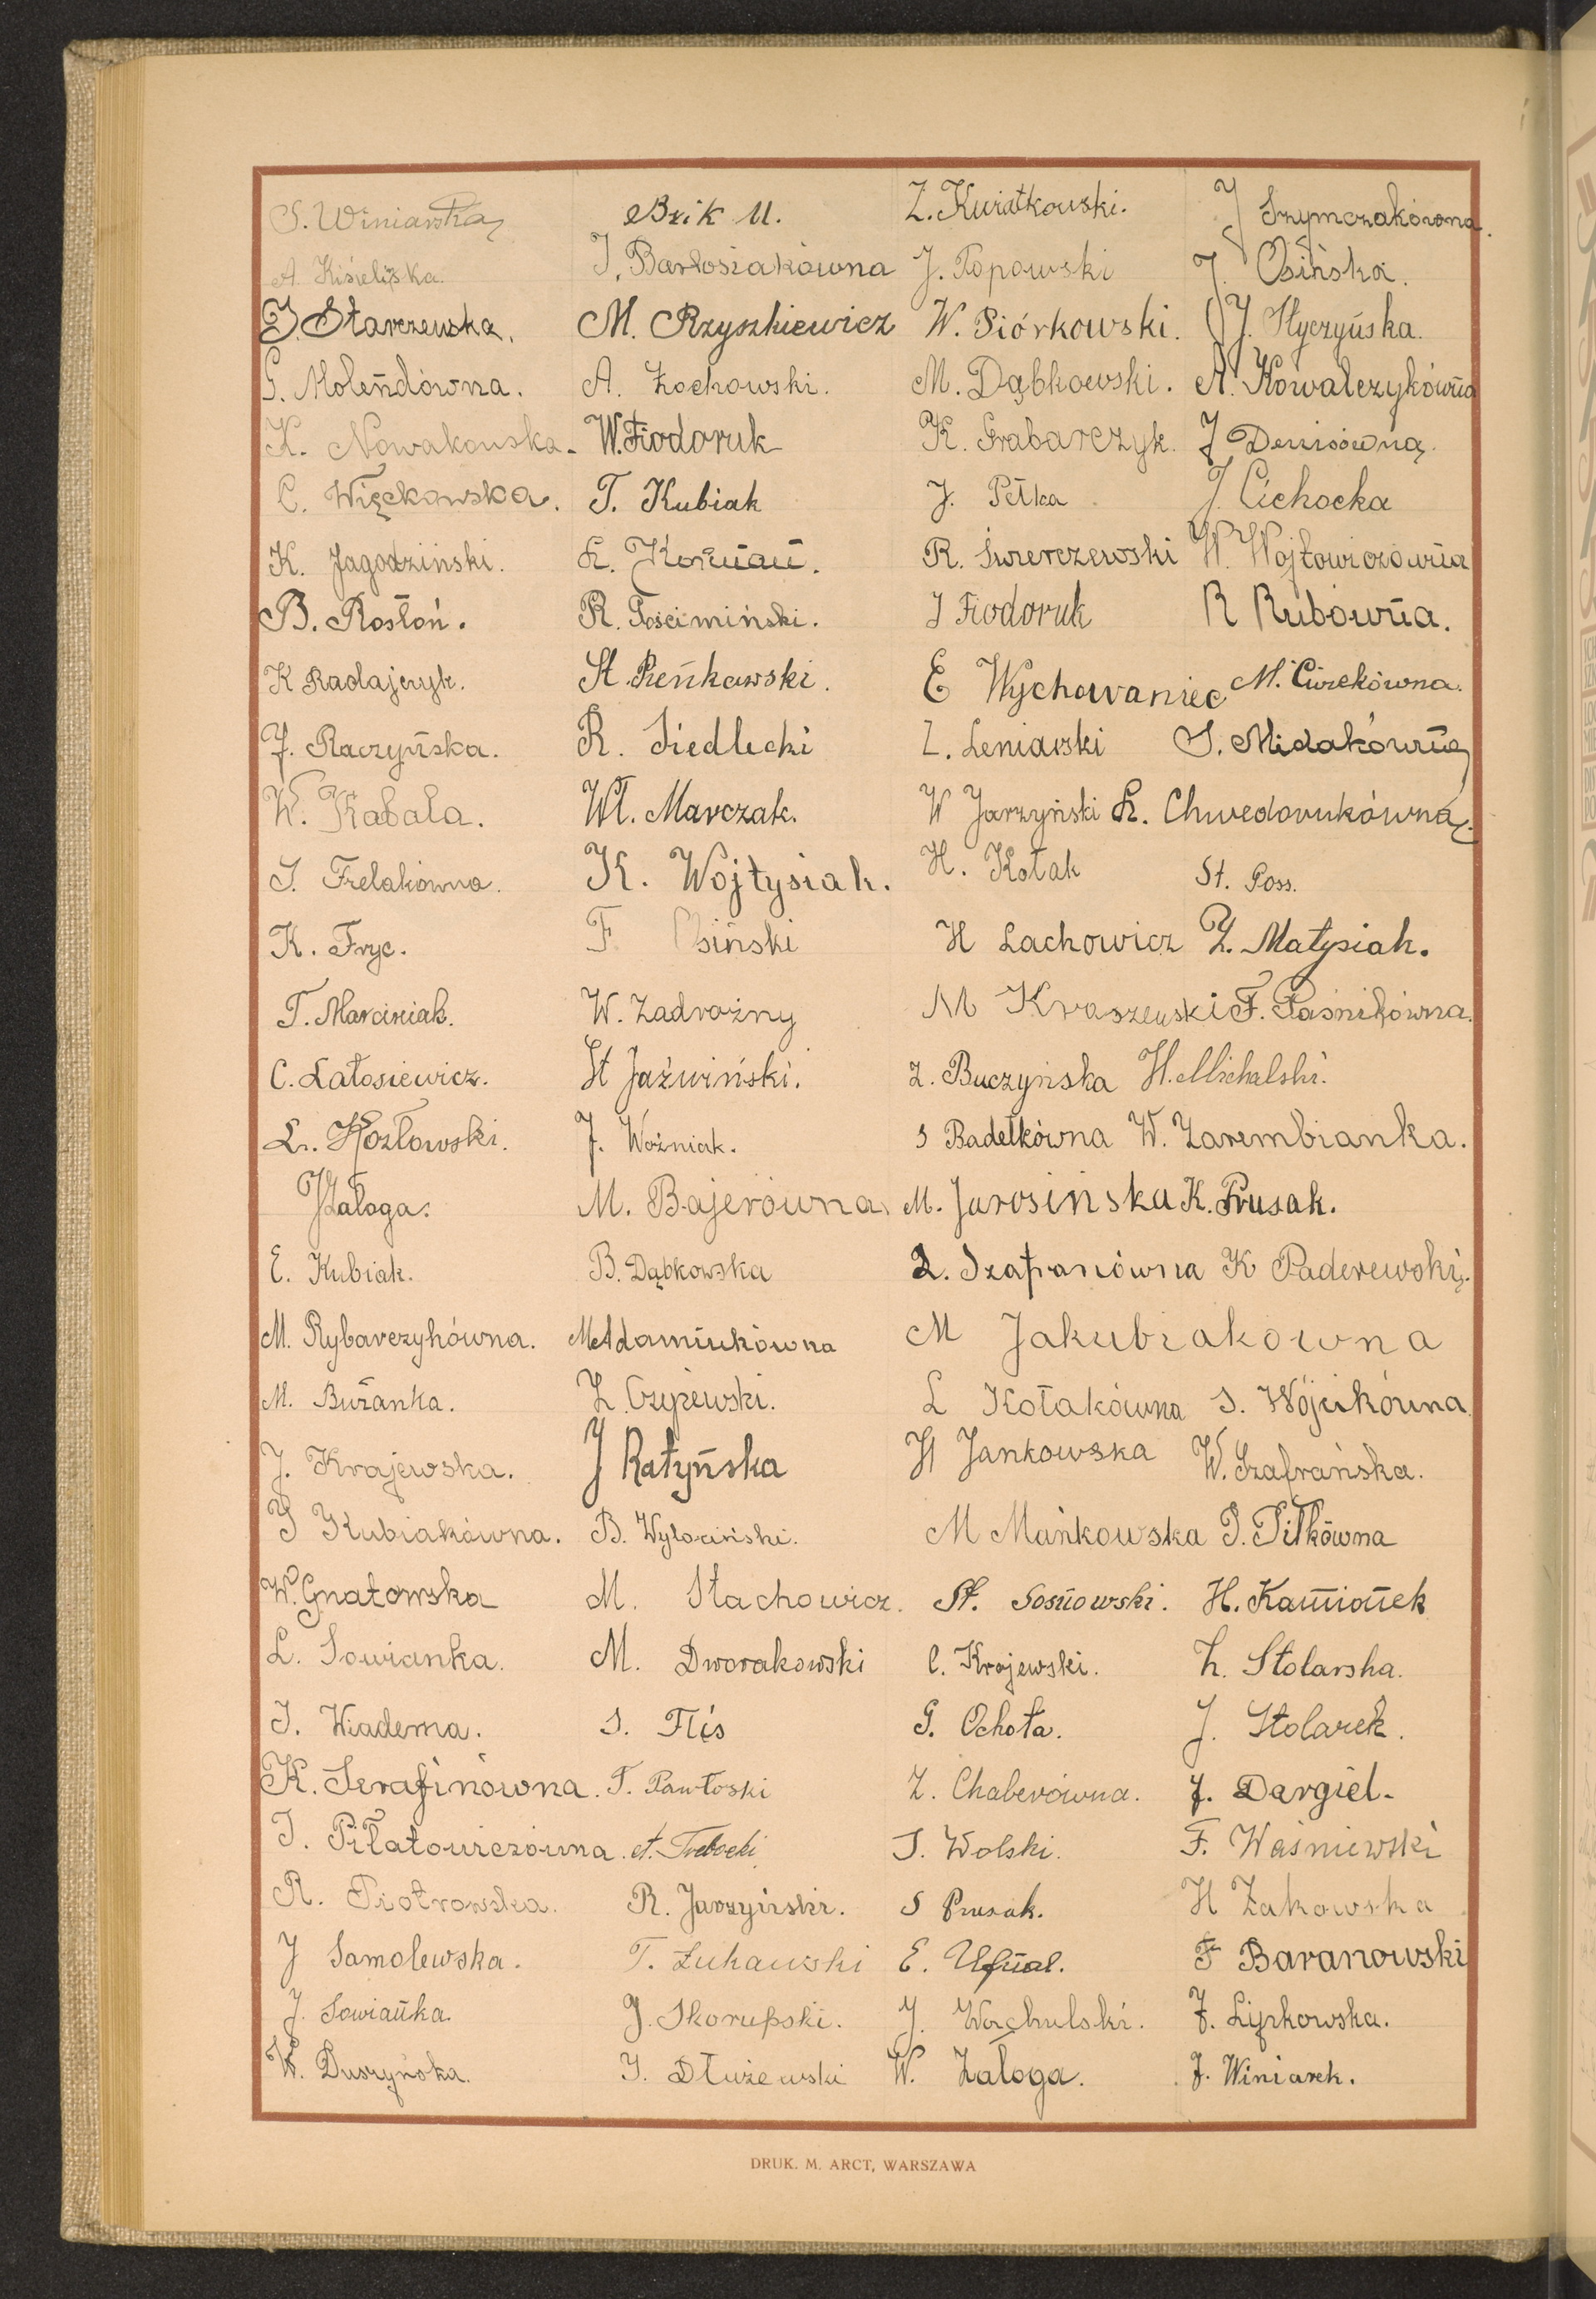 S. Winiarska Bzik M. Z. Kwiatkowski. J Szymczakówna.
A. Kisieliska. J. Bartosiakówna J. Popowski J. Osińska.
J. Starczewska. M. Rzyszkiewicz W. Piórkowski. J. Styczyńska.
G. Molendówna. A. Żochowski. M. Dąbkowski. A. Kowalczykówna
K. Nowakowska. W. Fiodoruk K. Grabarczyk. J Denisówna.
C. Więckowska. T. Kubiak J. Pełka J. Cichocka
K. Jagodziński. R. Świerczewski W. Wojtowiczówna
B. Rosłoń. R. Gościmiński. J Fiodoruk R Rubówna.
K Radajczyk. St. Pieńkowski. E Wychowaniec M. Ćwiekówna.
J. Raczyńska. R. Siedlecki Z. Leniarski S. Midakówna
W. Kabala. Wł. Marczak. W Jarzyński L. Chwedorukówna.
J. Frelakówna. K. Wojtysiak. H. Kołak St. Poss.
K. Fryc. F. Osiński H Lachowicz Z. Matysiak.
T. Marciniak. W. Zadrożny M Kraszewski F. Paśnikówna.
C. Latosiewicz. St Jaźwiński. Z. Buczyńska H. Michalski.
L. Kozłowski. J. Woźniak. S Badełkówna W. Zarembianka.
J Załoga. M. Bajerówna. M. Jarosińska K. Prusak.
E. Kubiak. B. Dąbkowska L. Szafranówna K Paderewski.
M. Rybarczykówna. M. Adamiukówna M Jakubiakowna
M. Buzanka. Z. Czyżewski. L Kołakówna S. Wójcikówna
J. Krajewska. J Ratyńska H Jankowska W. Szafrańska.
J Kubiakówna. B. Wylociński. M Mańkowska J. Pitkówna
W. Gnatowska M. Stachowicz. St. Sosnowski. H. Kamionek
L. Sowianka. M. Dworakowski C. Krajewski. Z. Stolarska.
J. Wiaderna. S. Flis G. Ochota. J. Stolarek.
K. Serafinówna. T. Pawłoski Z. Chaberówna. J. Dargiel.
J. Piłatowiczówna. A. Trebocki J. Wolski. F. Waśniewski
R. Piotrowska. R. Jarzyński. S Prusak. H Żakowska
J Samolewska. T. Żukawski E. F Baranowski
J. Sowianka. J. Skorupski. J. Wachulski. J. Lipkowska.
W. Duszyńska. J. Dłużewski W. Załoga. J. Winiarek.
DRUK. M. ARCT, WARSZAWA